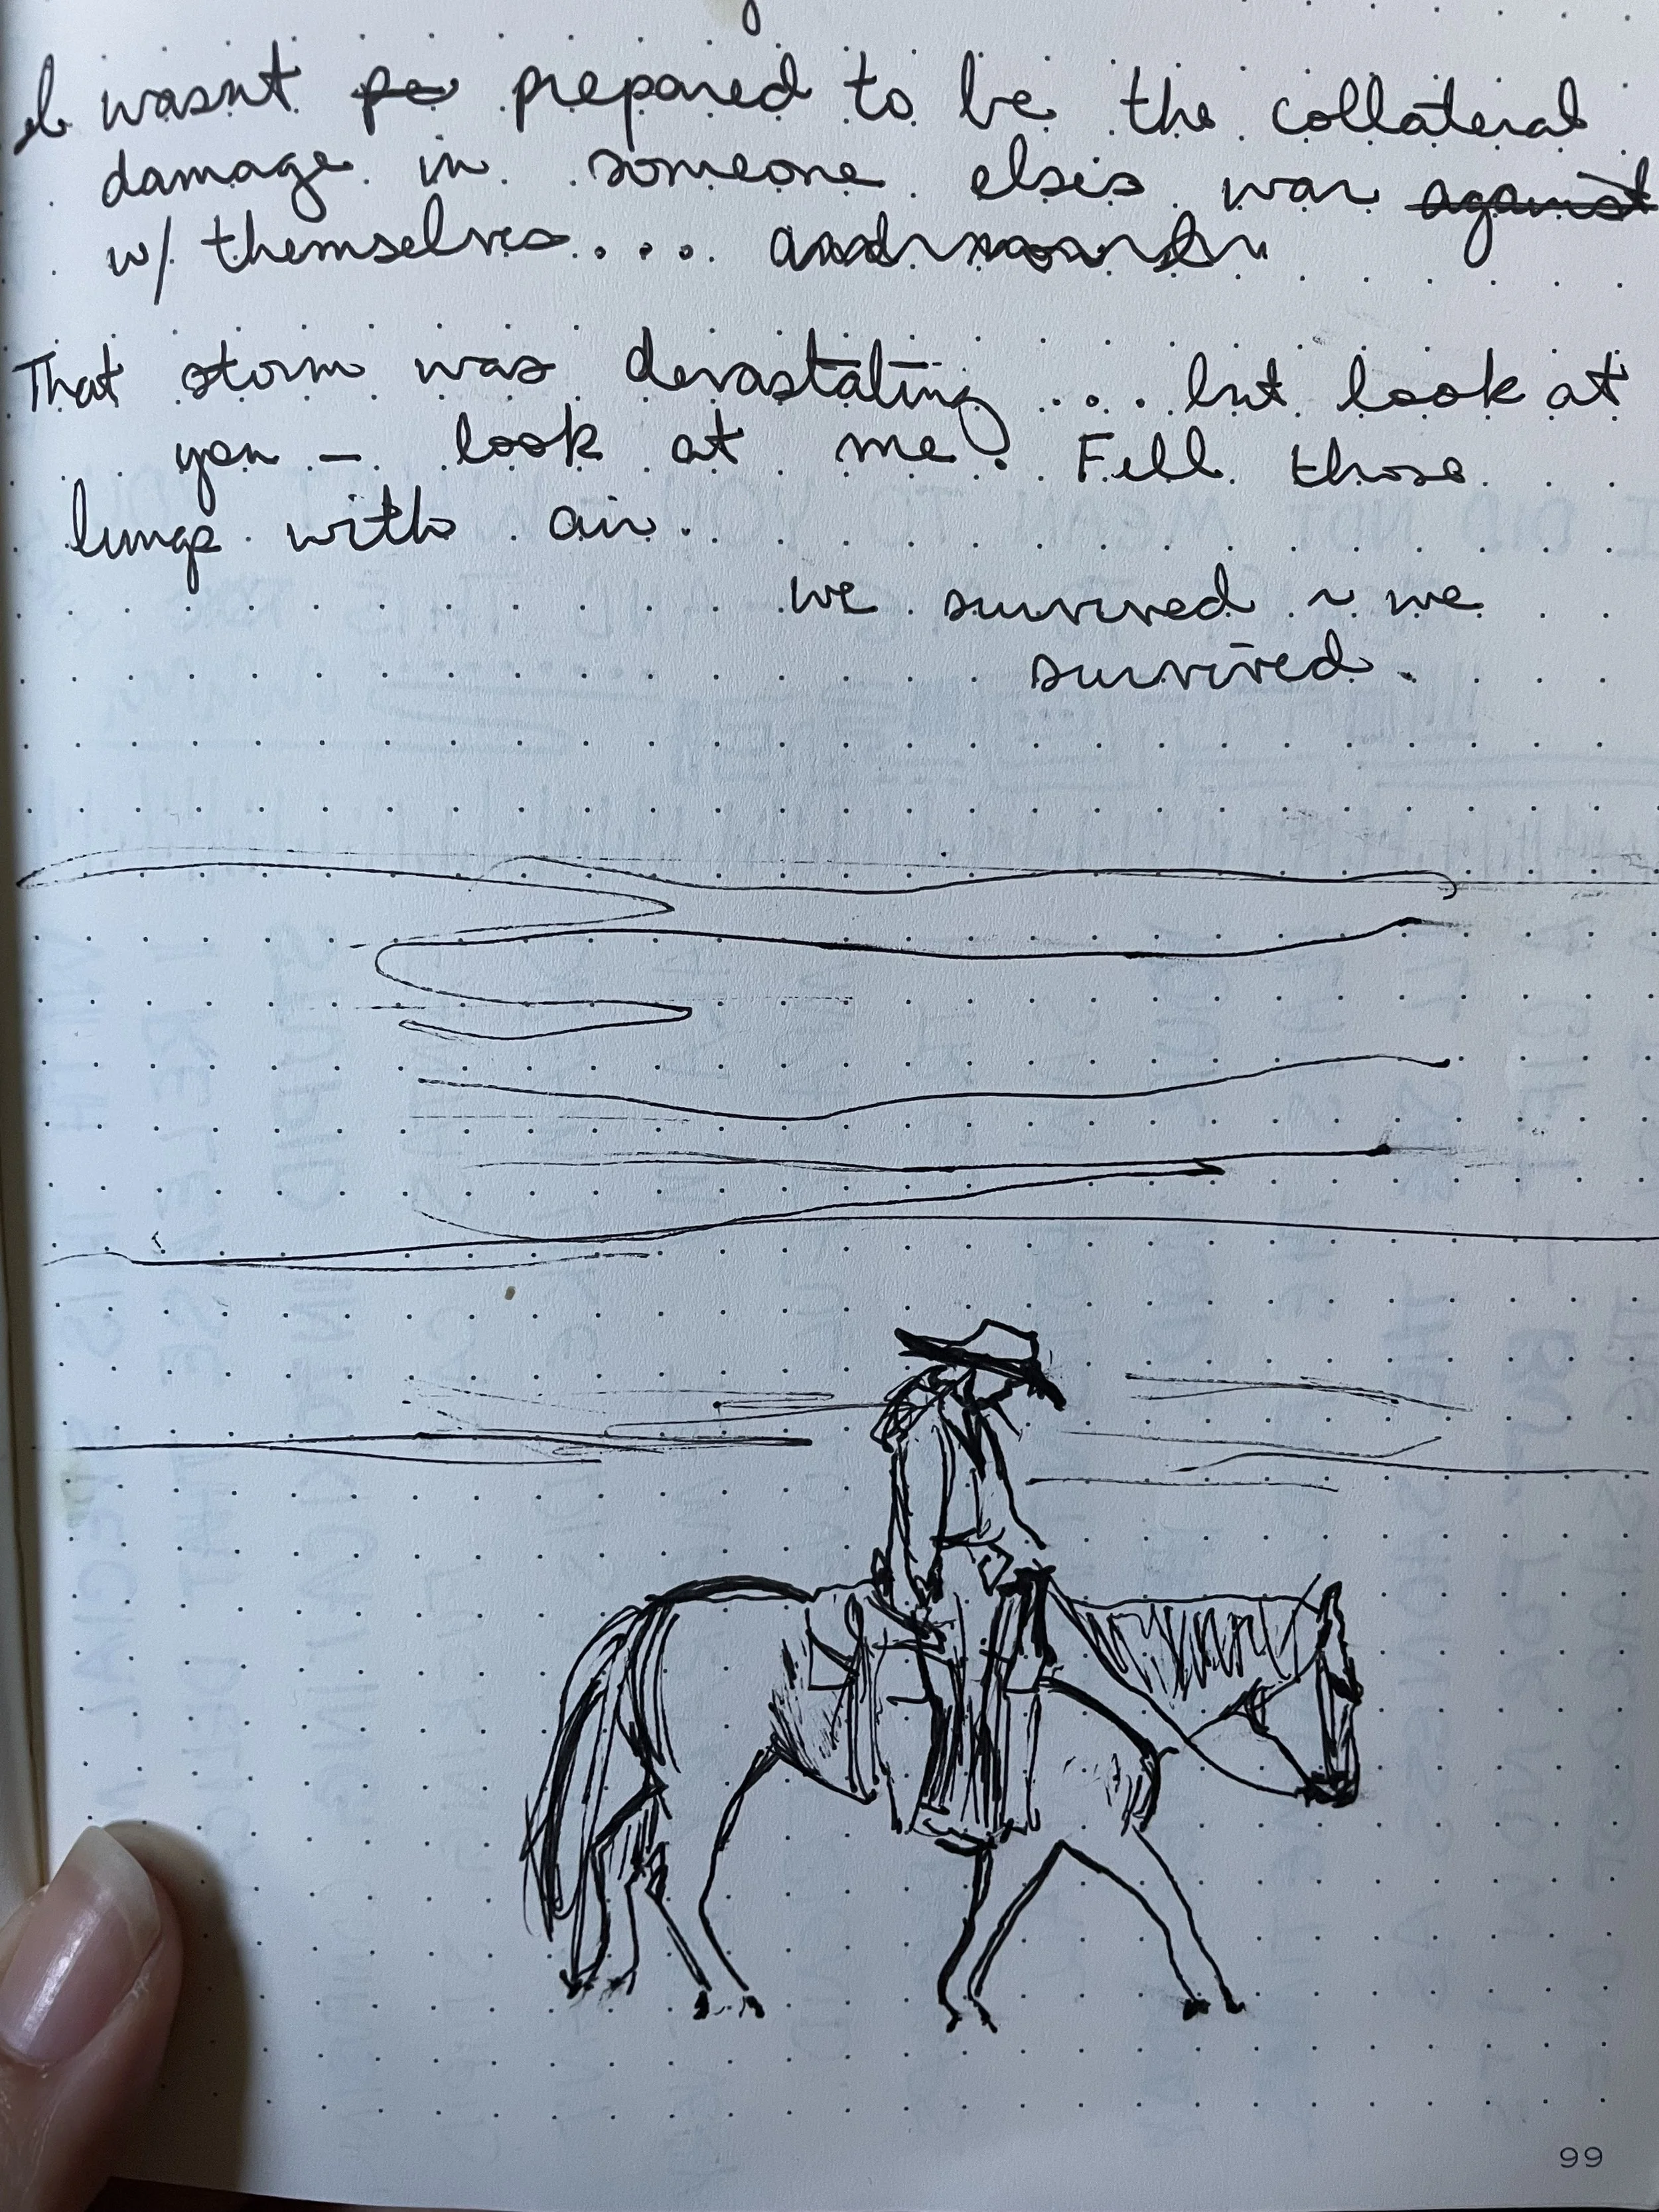 I wasnt pe prepared to be the collateral
damage in someone elsis war against
w/ themselves....
That storm was devastating .... but look at
you – look at me? Fill those
lungs with air.
we survived ~ we
survived.
99